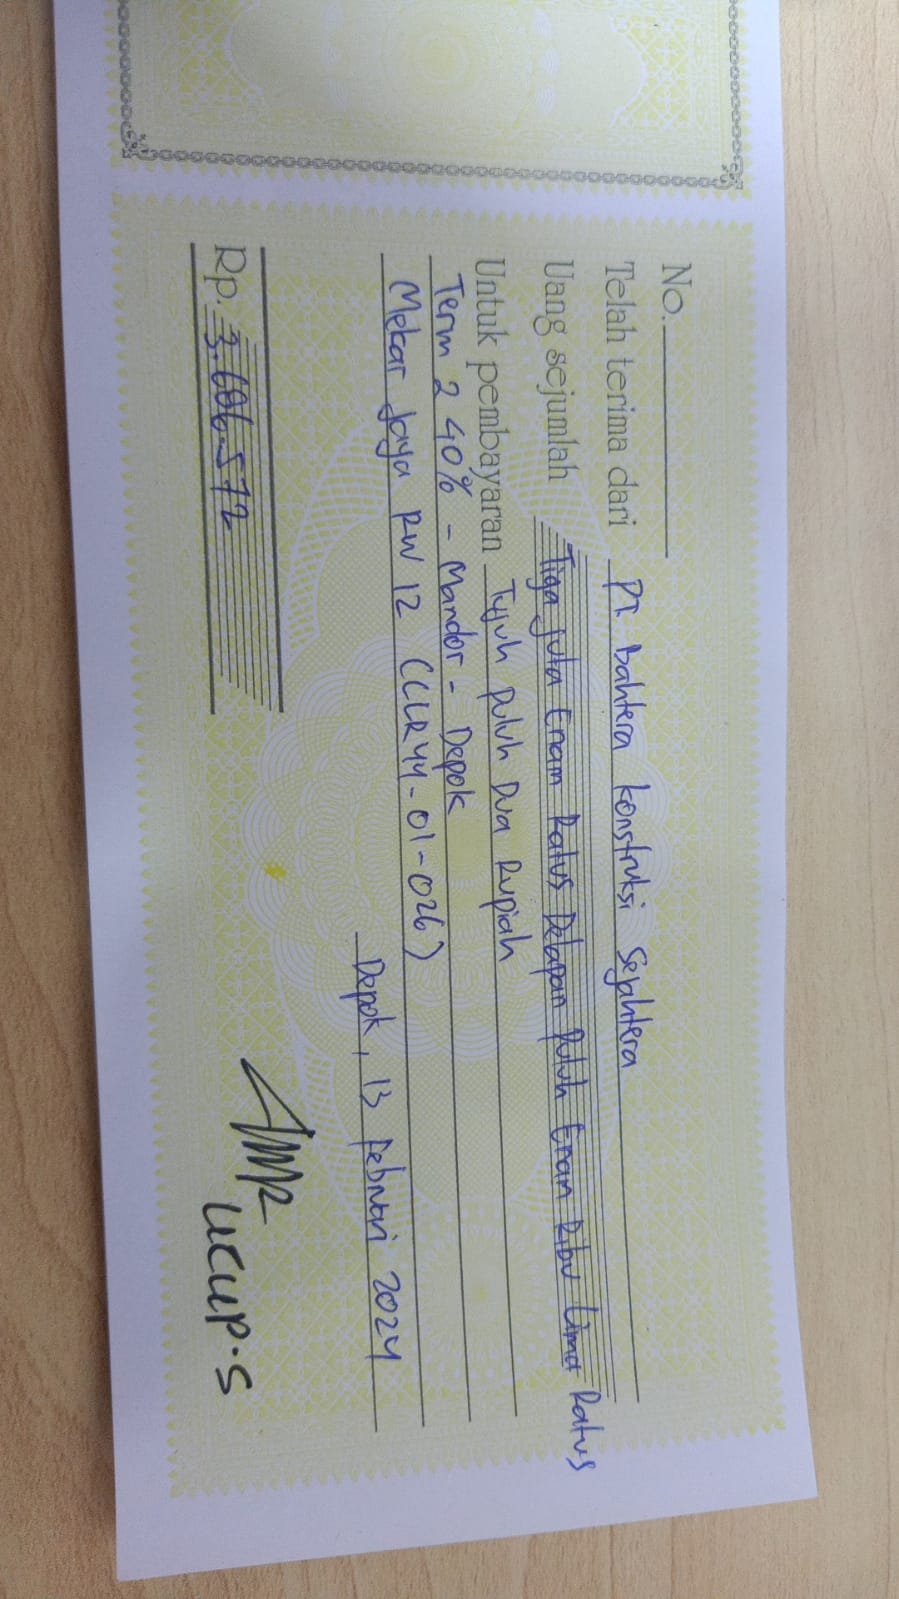 No.
Telah terima dari PT. Bahtera Konstruksi Sejahtera
Uang sejumlah Tiga Juta Enam Ratus Delapan Puluh Enam Ribu Lima Ratus
Untuk pembayaran Tujuh Puluh Dua Rupiah
Term 2 40% - Mandor - Depok
Mekar Jaya RW 12 (CLR44-01-026)
Depok, 13 Februari 2024
Rp. 3.686.572
UCUP.S